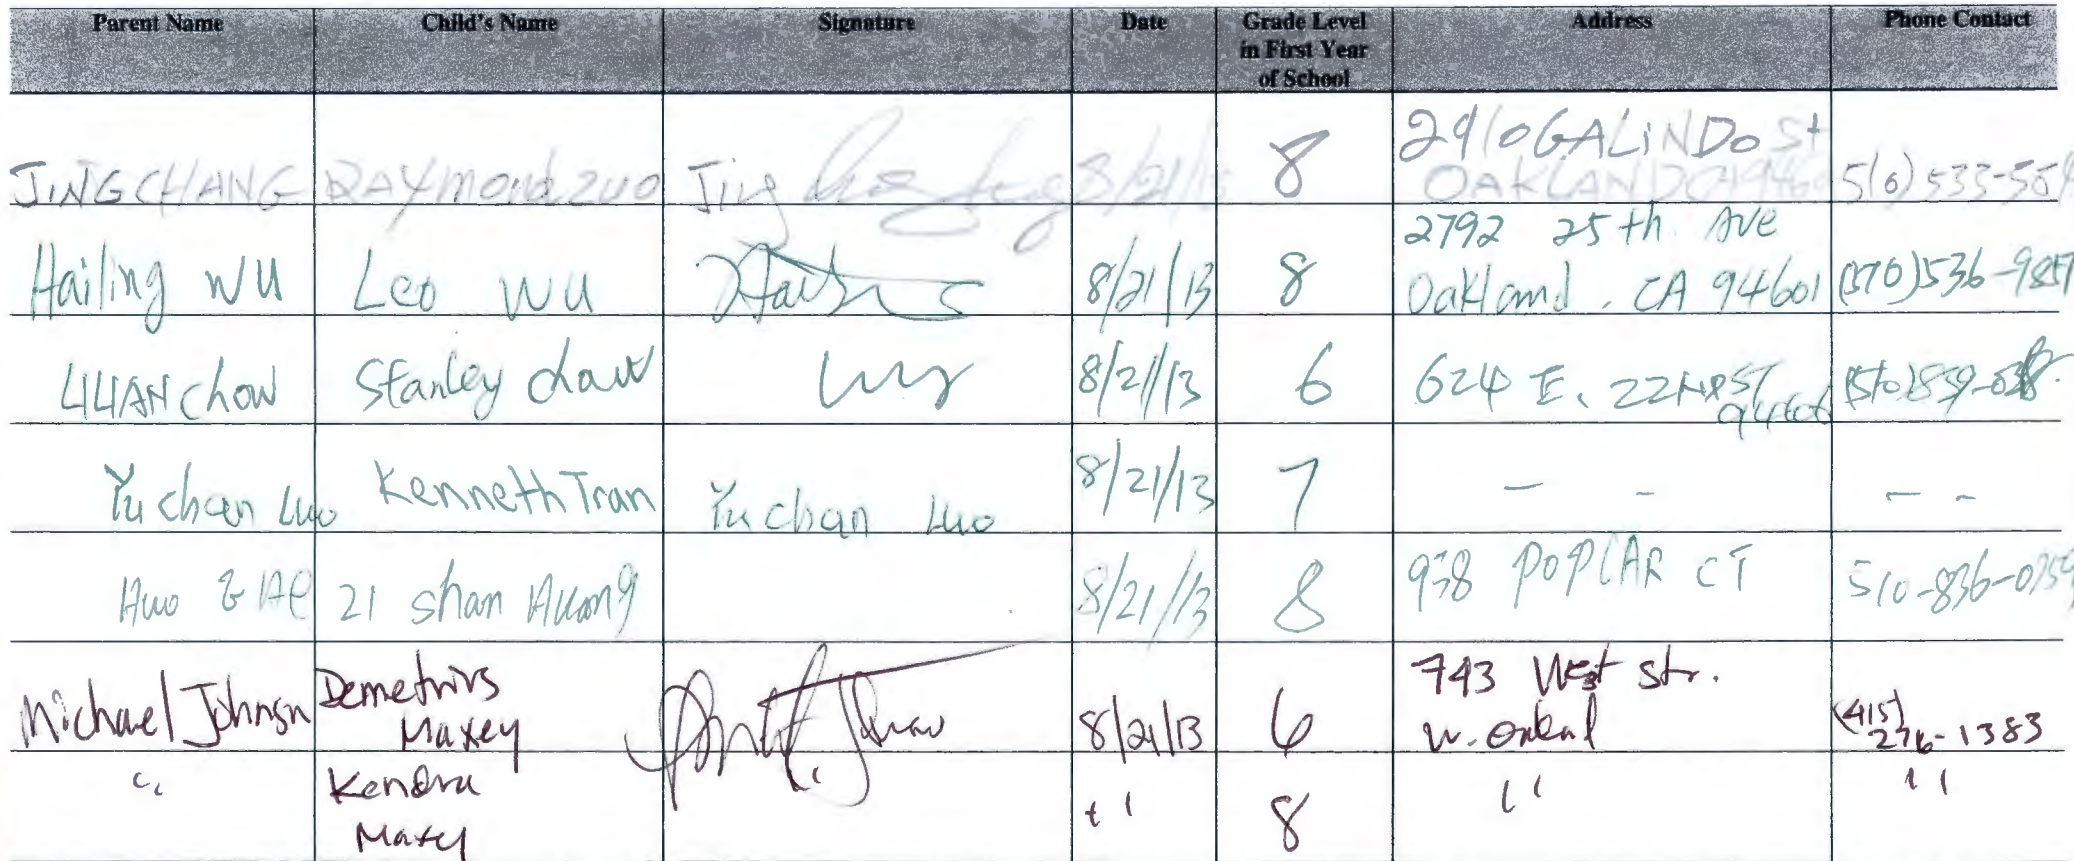 Parent Name Child's Name Signature Date Grade Level in First Year of School Address Phone Contact
JINGCHANG RAYmond zuo Jing 8/21/13 8 2910 GALINDO St
OAKLAND CA 9460 510) 533-55
Hailing WU Leo WU 8/21/13 8 2792 25th Ave
Oakland, CA 94601 (510) 536-9857
LILIAN chow Stanley chow 8/21/13 6 624 E. 22ND ST
94606 (510) 839-03
Yu chan Luo Kenneth Tran Yu chan Luo 8/21/13 7 - - - -
Huo 21 shan Huang 8/21/13 8 938 POPLAR CT 510-836-0759
Michael Johnsn Demetrius
Maxey 8/21/13 6 743 West str.
W. (415)
276-1383
" Kendra
Maxey " " 8 " "